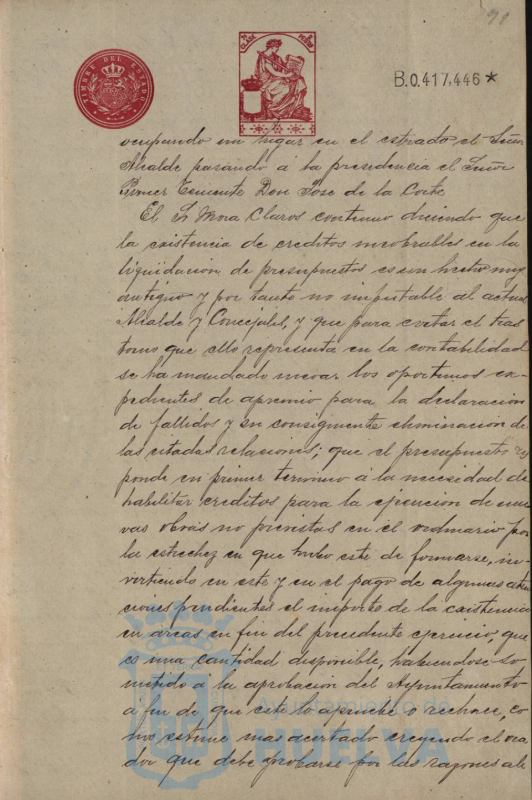 91
TIMBRE DEL ESTADO
CLASE
B.0.417,446*
ocupando un lugar en el estrado el Señor
Alcalde pasando á la presidencia el Señor
Primer Teniente Don Jose de la Corte
El Sr Mora Claros continuo diciendo que
la existencia de creditos incobrables en la
liquidacion de presupuestos es un hecho muy
antiguo y por tanto no imputable al actual
Alcalde y Concejales, y que para evitar el tras
torno que ello representa en la contabilidad
se ha mandado incoar los oportunos ex-
pedientes de apremio para la declaracion
de fallidos y su consiguiente eliminacion de
las citadas relaciones; que el presupuesto res
ponde en primer termino á la necesidad de
habilitar creditos para la ejecucion de nue
vas obras no previstas en el ordinario por
la estrechez en que hubo este de formarse, in-
virtiendo en este y en el pago de algunas aten
ciones pendientes el importe de la existencia
en arcas en fin del precedente ejercicio, que
es una cantidad disponible, habiendose so
metido a la aprobacion del Ayuntamiento
a fin de que este lo apruebe o rechace, co
mo estime mas acertado creyendo el ora
dor que debe probarse por las razones ale
Ayuntamiento de
HUELVA